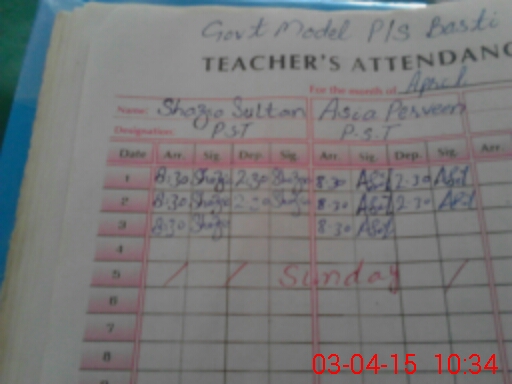 Govt Model P/S Basti
TEACHER'S ATTENDANC
For the month of April
Name: Shazia Sultan Asia Perveen
Designation: PST P.S.T
Date Arr. Sig. Dep. Sig. Arr. Sig. Dep. Sig. Arr
1 8:30 Shazia 2:30 Shazia 8:30 2:30
2 8:30 Shazia 2:30 Shazia 8:30 2:30
3 8:30 Shazia 8:30
4
5 / / Sunday /
6
7
8
03-04-15 10:34